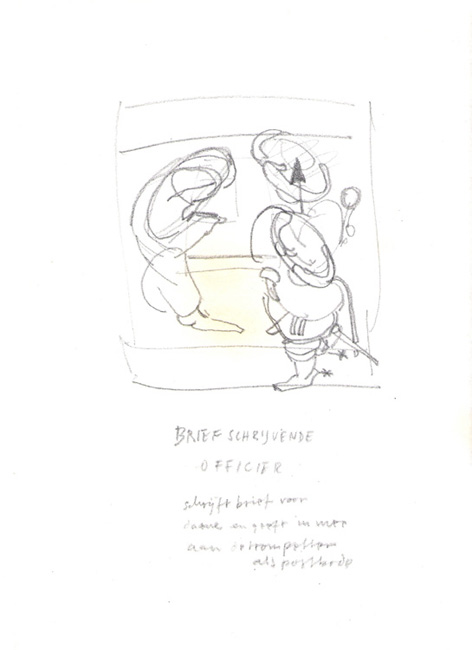 BRIEF SCHRIJVENDE
OFFICIER
schrijft brief voor
dame en geeft 'm mee
aan trompetter
als postbode